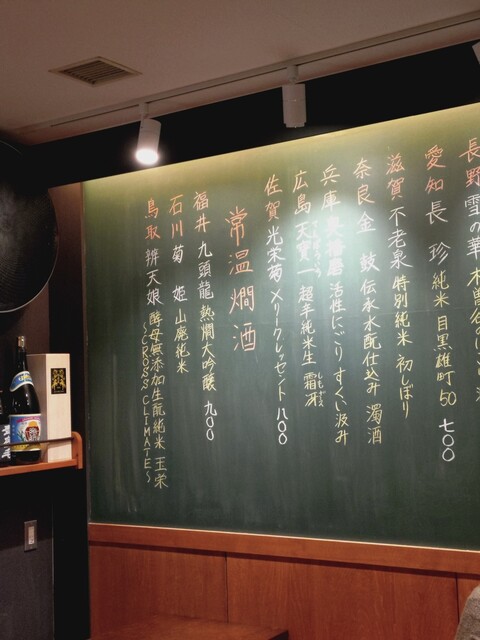 長野 雪の華 木曽谷のにごり酒
愛知 長 珍 純米 目黒雄町50 七〇〇
滋賀 不老泉 特別純米 初しぼり
奈良 金 鼓 伝永水酛仕込み 濁酒
兵庫 活性にごり すくい汲み
広島 天寶一 超辛純米生 霜冴
佐賀 光栄菊 メリークレッセント 八〇〇
常温燗酒
福井 九頭龍 熱燗大吟醸 九〇〇
石川 菊 姫 山廃純米
鳥取 辨天娘 酵母無添加生酛純米 玉栄
～CROSS CLIMATE～